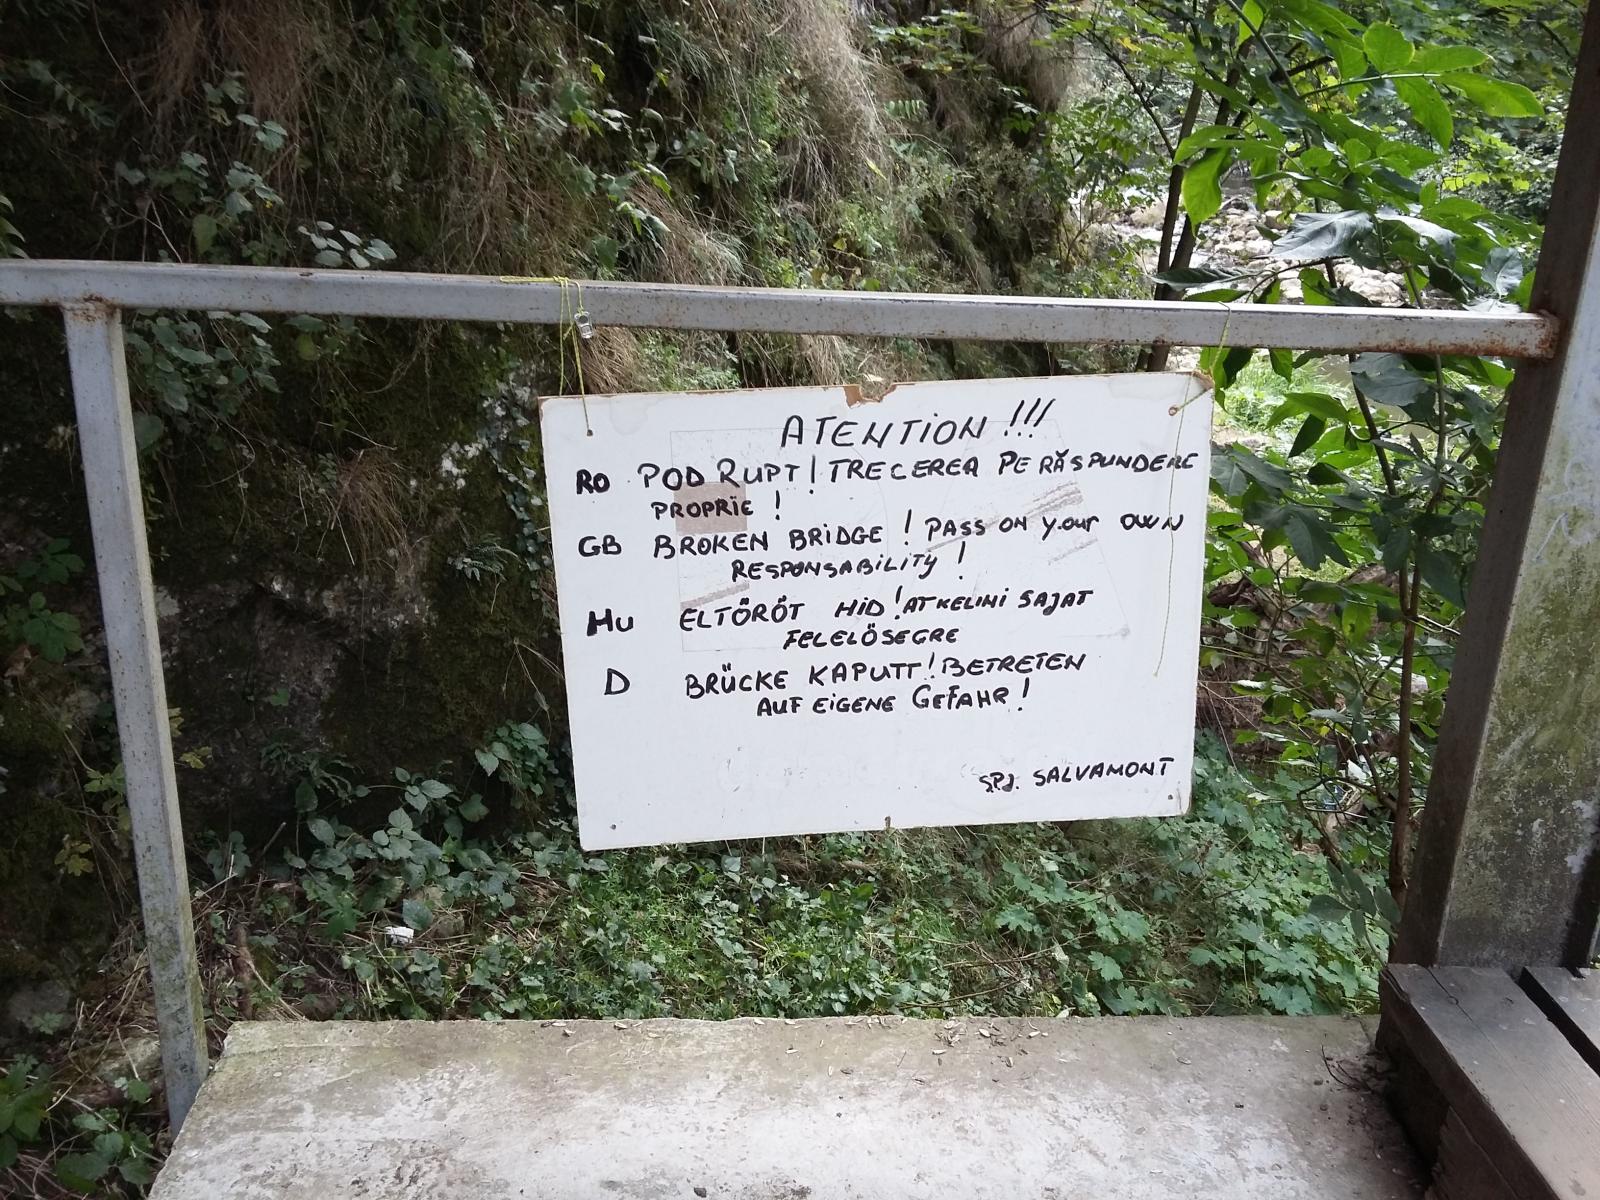 ATENTION !!!
RO POD RUPT! TRECEREA PE RĂSPUNDERE
PROPRIE !
GB BROKEN BRIDGE ! PASS ON your OWN
RESPONSABILITY !
HU ELTÖRÖT HID! ATKELINI SAJAT
FELELÖSEGRE
D BRÜCKE KAPUTT! BETRETEN
AUF EIGENE GEFAHR!
SPJ. SALVAMONT